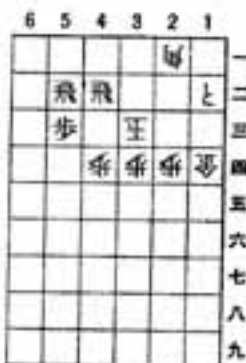 6 5 4 3 2 1
角 一
飛 飛 と 二
歩 王 三
歩 歩 歩 金 四
五
六
七
八
九